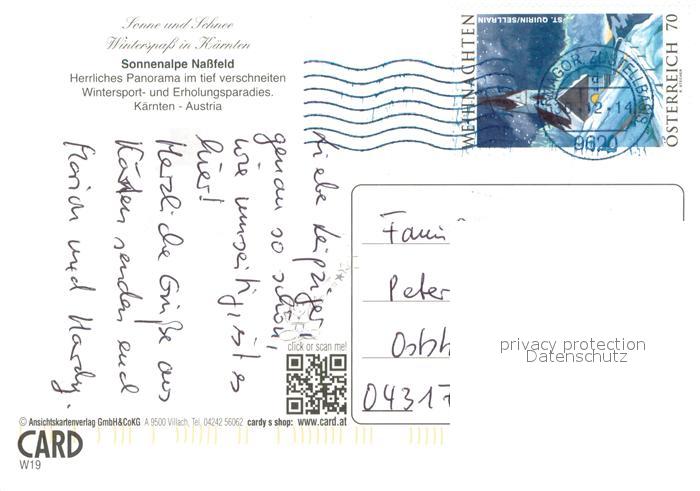 Sonne und Schnee
Winterspaß in Kärnten
Sonnenalpe Naßfeld
Herrliches Panorama im tief verschneiten
Wintersport- und Erholungsparadies.
Kärnten - Austria
Liebe Leipziger!
genau so schön,
wie umseitig, ist es
hier!
Herzliche Grüße aus
Kärnten senden euch
Florian und Hardy.
WEIHNACHTEN
ST. QUIRIN/SELLRAIN
ÖSTERREICH 70
9620
Fami
Peter
Ostst
04317
privacy protection
Datenschutz
click or scan me!
© Ansichtskartenverlag GmbH&CoKG A 9500 Villach, Tel. 04242 56062 cardy s shop: www.card.at
CARD
W19